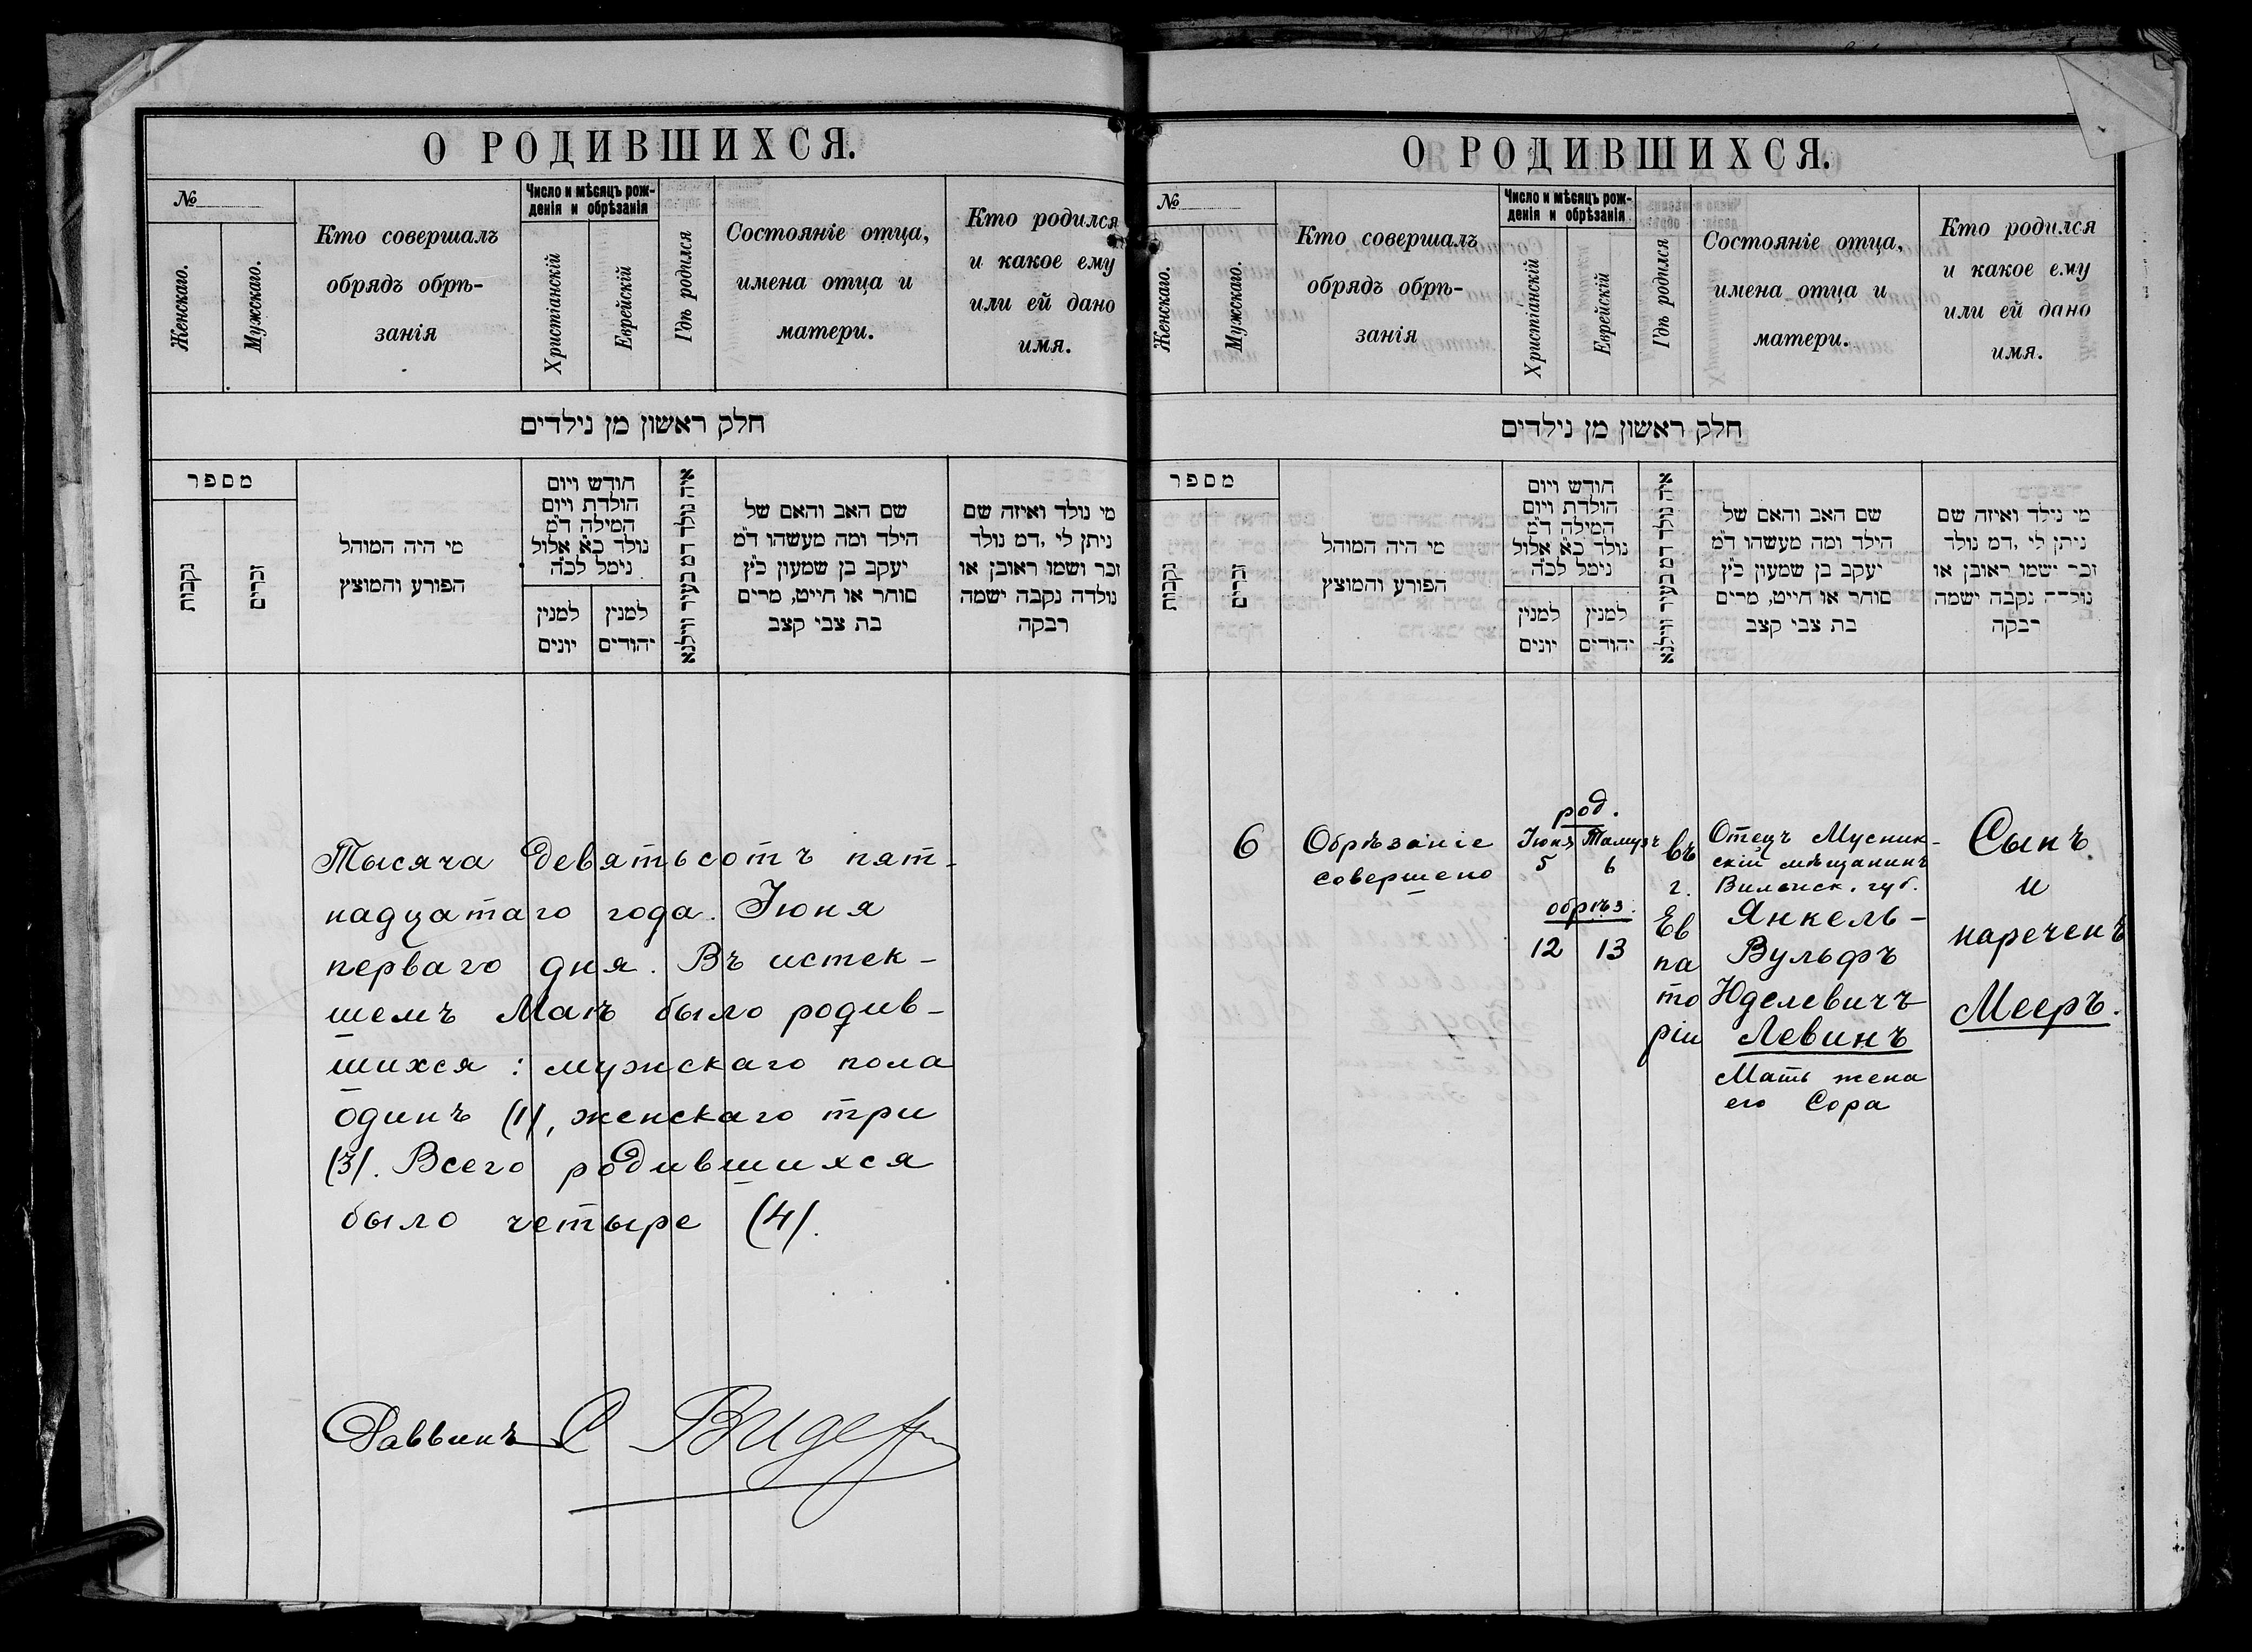 О РОДИВШИХСЯ.
№
Женскаго.
Мужскаго.
Кто совершалъ
обрядъ обрѣ-
занія
Число и мѣсяцъ рож-
денія и обрѣзанія
Христіанскій
Еврейскій
Гдѣ родился
Состояніе отца,
имена отца и
матери.
Кто родился
и какое ему
или ей дано
имя.
חלק ראשון מן נילדים
מספר
נקבות
זכרים
מי היה המוהל
הפורע והמוצץ
חודש ויום
הולדת ויום
המילה ד״מ
נולד כ״א אלול
נימל לכ״ה
למנין
יונים
למנין
יהודים
איה נולד דמ בעיר ווילנא
שם האב והאם של
הילד ומה מעשהו ד״מ
יעקב בן שמעון כ״ץ
סוחר או חייט, מרים
בת צבי קצב
מי נולד ואיזה שם
ניתן לי ,דמ נולד
זכר ושמו ראובן או
נולדה נקבה ישמה
רבקה
Тысяча девятьсотъ пят-
надцатаго года. Іюня
перваго дня. Въ истек-
шемъ Маѣ было родив-
шихся: мужскаго пола
одинъ (1), женскаго три
(3). Всего родившихся
было четыре (4).
Раввинъ
О РОДИВШИХСЯ.
№
Женскаго.
Мужскаго.
Кто совершалъ
обрядъ обрѣ-
занія
Число и мѣсяцъ рож-
денія и обрѣзанія
Христіанскій
Еврейскій
Гдѣ родился
Состояніе отца,
имена отца и
матери.
Кто родился
и какое ему
или ей дано
имя.
חלק ראשון מן נילדים
מספר
נקבות
זכרים
מי היה המוהל
הפורע והמוצץ
חודש ויום
הולדת ויום
המילה ד״מ
נולד כ״א אלול
נימל לכ״ה
למנין
יונים
למנין
יהודים
איה נולד דמ בעיר ווילנא
שם האב והאם של
הילד ומה מעשהו ד״מ
יעקב בן שמעון כ״ץ
סוחר או חייט, מרים
בת צבי קצב
מי נילד ואיזה שם
ניתן לי ,דמ נולד
זכר ישמו ראובן או
נולדה נקבה ישמה
רבקה
6
Обрѣзаніе
совершено
род.
Іюня Тамузъ
5 6
обрѣз.
12 13
въ
г.
Ев
па
то
ріи
Отецъ Мусник-
скій мѣщанинъ
Виленск. губ.
Янкель-
Вульфъ
Юделевичъ
Левинъ
Мать жена
его Сора
Сынъ
и
нареченъ
Мееръ.